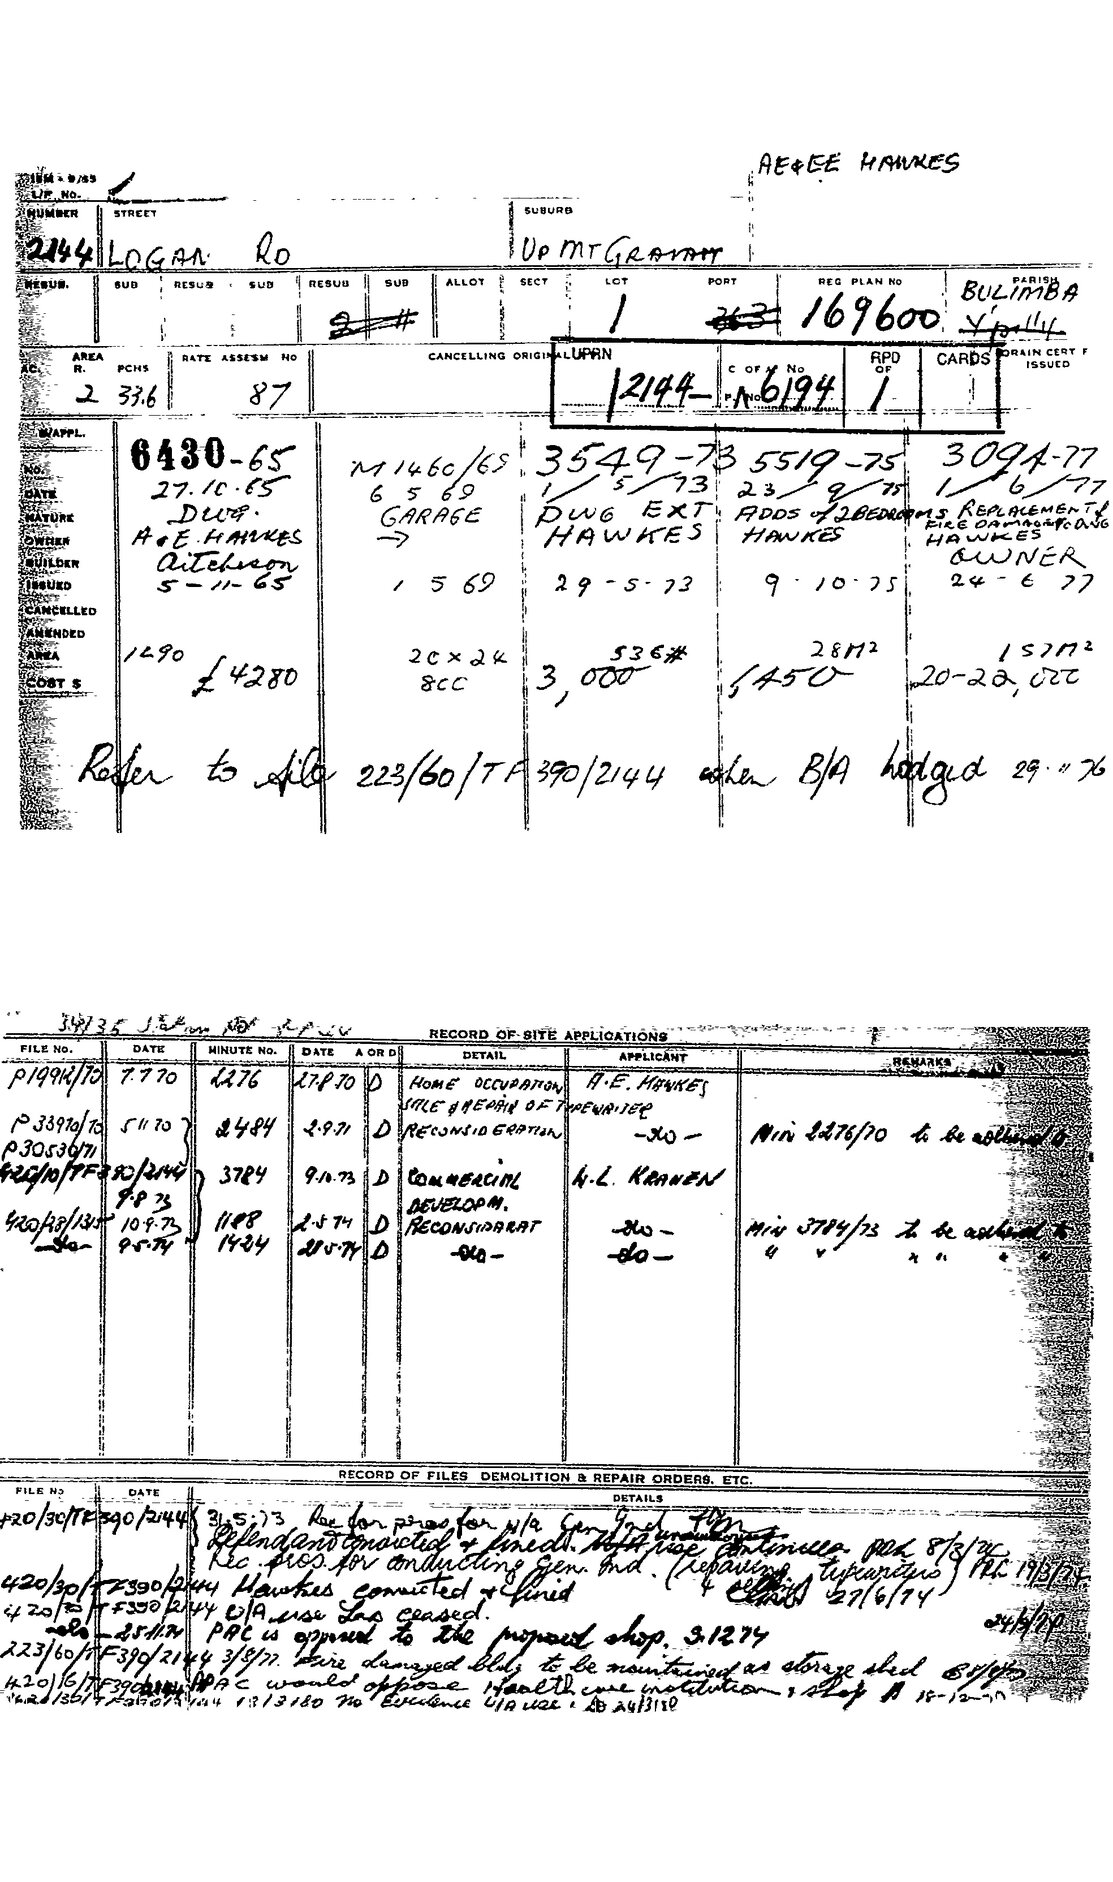 AE & EE HAWKES
L/P. NO.
NUMBER STREET SUBURB
2144 LOGAN RD UP MT GRAVATT
RESUB. SUB RESUB SUB RESUB SUB ALLOT SECT LOT PORT REG PLAN No PARISH
1 169600 BULIMBA
AREA RATE ASSESM No CANCELLING ORIGINAL UPRN C OF No RPD OF CARDS DRAIN CERT ISSUED
AC. R. PCHS
2 33.6 87 12144 A 6194 1 1
B/APPL.
NO. 6430-65 M1460/69 3549-73 5519-75 3094-77
DATE 27.10.65 6 5 69 1/5/73 23/9/75 1/6/77
NATURE DWG. GARAGE DWG EXT ADDS of 2 BEDROOMS REPLACEMENT of FIRE DAMAGED DWG
OWNER A & E. HAWKES → HAWKES HAWKES HAWKES
BUILDER Aitcheson OWNER
ISSUED 5-11-65 1 5 69 29-5-73 9-10-75 24-6 77
CANCELLED
AMENDED
AREA 1290 20 x 24 536# 28M² 157M²
COST $ £4280 800 3,000 1,450 20-22,000
Refer to file 223/60/TF 390/2144 when B/A lodged 29·11 76
RECORD OF SITE APPLICATIONS
FILE No. DATE MINUTE No. DATE A OR D DETAIL APPLICANT REMARKS
7.7.70 2276 27.8.70 D HOME OCCUPATION A.E. HAWKES
SALE & REPAIR OF TYPEWRITER
P33970/70 5 11 70 2484 2.9.71 D RECONSIDERATION -do- Min 2276/70 to be adhered to
P30530/71
420/10/TF390/2144 3784 9.10.73 D COMMERCIAL W.L. KRANEN
9.8.73 DEVELOPM.
10.9.73 1188 2.5.74 D RECONSIDARAT -do- Min 3784/73 to be adhered to
-do- 9.5.74 1424 21.5.74 D -do- -do- " " " " " "
RECORD OF FILES DEMOLITION & REPAIR ORDERS. ETC.
FILE No DATE DETAILS
420/30/TF390/2144 Rec for pros for u/a Gen Ind
Defendant convicted & fined. use continues 8/3/74
Rec. pros. for conducting Gen. Ind. (repairing typewriters) 19/3/74
420/30/TF390/2144 Hawkes convicted & fined 27/6/74
420/30/TF390/2144 U/A use has ceased.
-do- 25.11.74 PAC is opposed to the proposed shop. 3.12.74
223/60/TF390/2144 3/8/77. Fire damaged bldg to be maintained as storage shed
420/6/TF390/2144 PAC would oppose Health care institution & shop
No Evidence U/A use